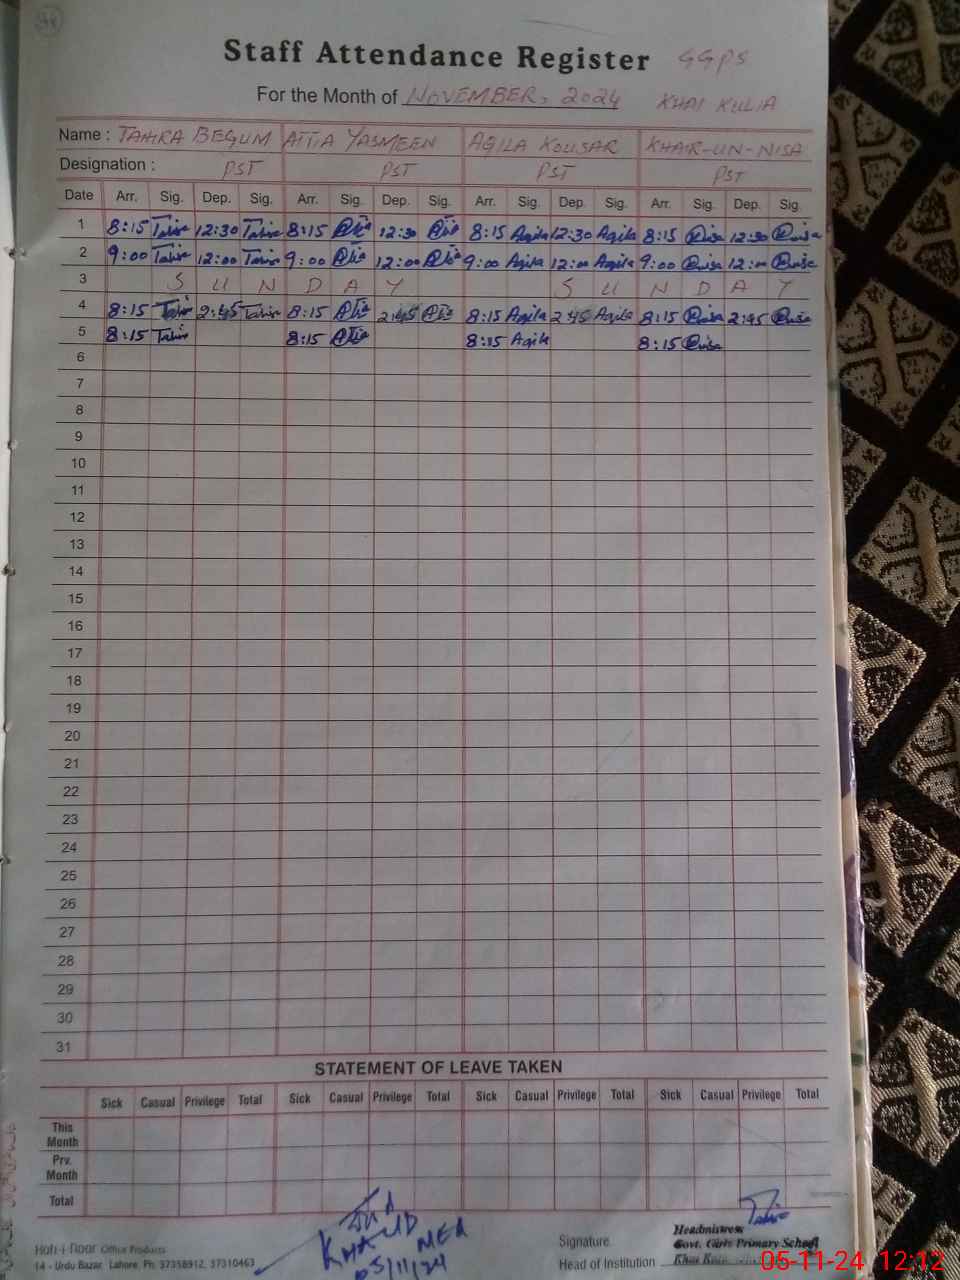 Staff Attendance Register GGPS
For the Month of NOVEMBER, 2024 KHAI KULIA
Name : TAHIRA BEGUM ATTIA YASMEEN AQILA KOUSAR KHAIR-UN-NISA
Designation : PST PST PST PST
Date Arr. Sig. Dep. Sig. Arr. Sig. Dep. Sig. Arr. Sig. Dep. Sig. Arr. Sig. Dep. Sig.
1 8:15 Tahira 12:30 Tahira 8:15 12:30 8:15 Aqila 12:30 Aqila 8:15 12:30
2 9:00 Tahira 12:00 Tahira 9:00 12:00 9:00 Aqila 12:00 Aqila 9:00 12:00
3 S U N D A Y S U N D A Y
4 8:15 Tahira 2:45 Tahira 8:15 2:45 8:15 Aqila 2:45 Aqila 8:15 2:45
5 8:15 Tahira 8:15 8:15 Aqila 8:15
6
7
8
9
10
11
12
13
14
15
16
17
18
19
20
21
22
23
24
25
26
27
28
29
30
31
STATEMENT OF LEAVE TAKEN
Sick Casual Privilege Total Sick Casual Privilege Total Sick Casual Privilege Total Sick Casual Privilege Total
This
Month
Prv.
Month
Total
KHALID
MEA
05/11/24
Office Products
14 - Urdu Bazar, Lahore. Ph: 37358912, 37310463
Signature
Head of Institution
Headmistress
Govt. Girls Primary School
05-11-24 12:12